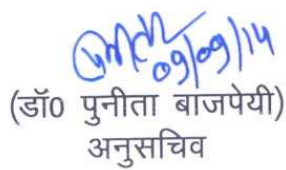 09/09/14
(डॉ0 पुनीता बाजपेयी)
अनुसचिव